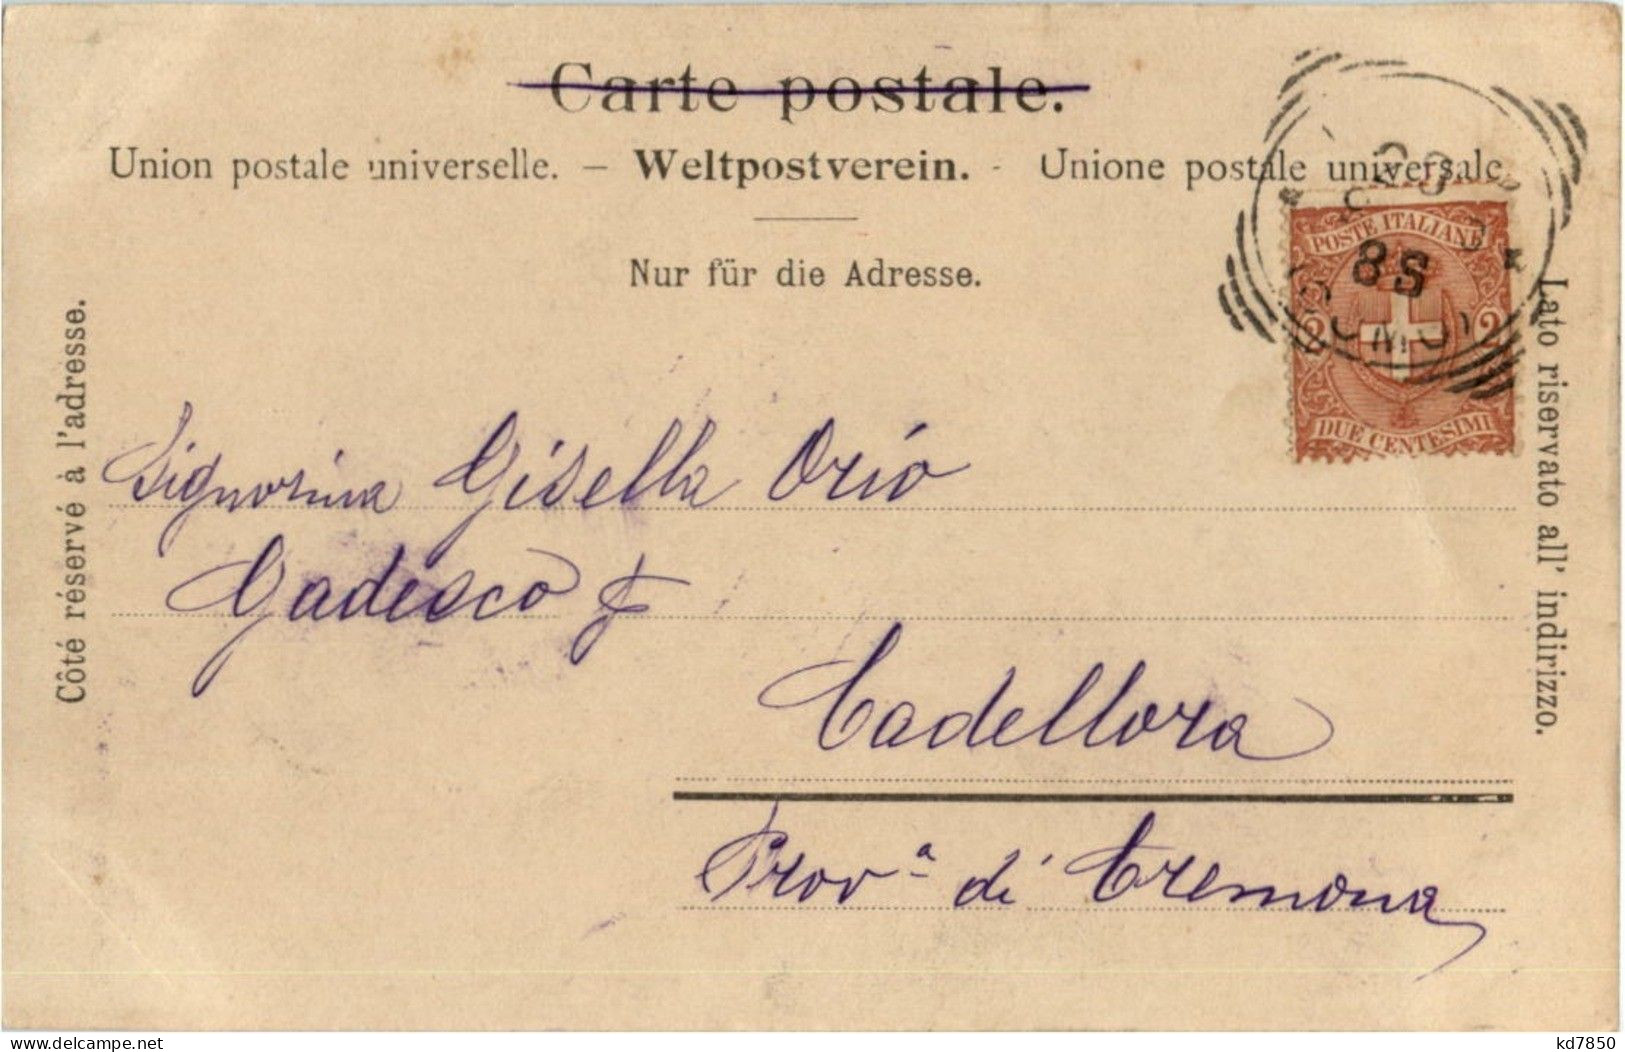 Carte postale.
Union postale universelle. – Weltpostverein. - Unione postale universale.
Nur für die Adresse.
Côté réservé à l'adresse.
Lato riservato all' indirizzo.
POSTE ITALIANE
8S
2 2
DUE CENTESIMI
Signorina Gisella Orio
Gadesco
Cadellora
Prov.ª di Cremona
www.delcampe.net
kd7850